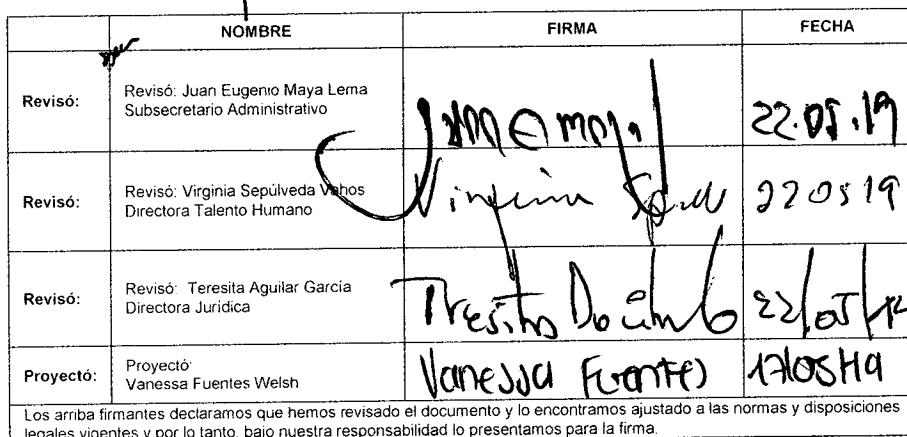 NOMBRE FIRMA FECHA
Revisó: Revisó: Juan Eugenio Maya Lema
Subsecretario Administrativo
22.05.19
Revisó: Revisó: Virginia Sepúlveda Vahos
Directora Talento Humano
Virginia
220519
Revisó: Revisó: Teresita Aguilar García
Directora Jurídica
22/05/
Proyectó: Proyectó:
Vanessa Fuentes Welsh
Vanessa Fuentes 17/05/19
Los arriba firmantes declaramos que hemos revisado el documento y lo encontramos ajustado a las normas y disposiciones
legales vigentes y por lo tanto, bajo nuestra responsabilidad lo presentamos para la firma.